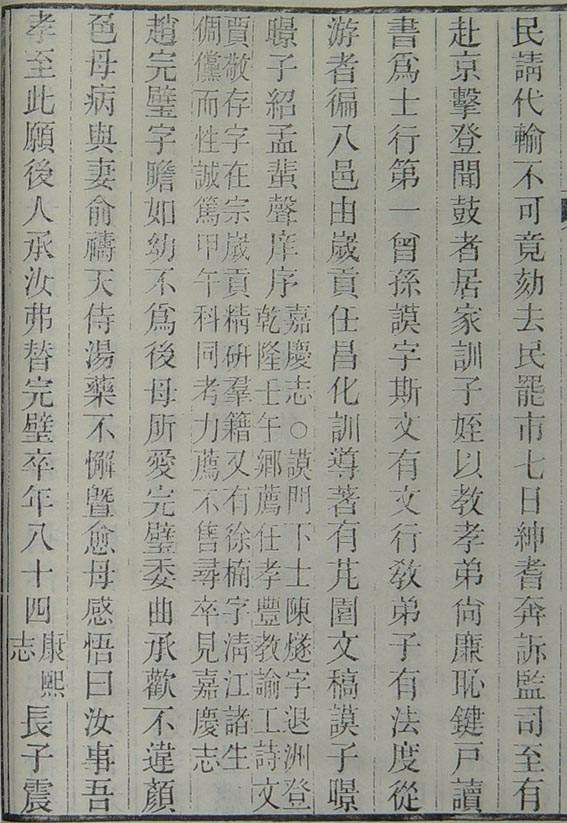 民請代輸不可竟劾去民罷市七日紳耆奔訴監司至有
赴京擊登聞鼓者居家訓子姪以教孝弟尙廉恥鍵戸讀
書爲士行第一曾孫謨字斯文有文行敎弟子有法度從
游者徧八邑由嵗貢任昌化訓導著有芃園文稿謨子暻
暻子紹孟蜚聲庠序嘉慶志○謨門下士陳燧字退洲登
乾隆壬午鄉薦任孝豐教諭工詩文
賈敬存字在宗嵗貢精硏羣籍又有徐楠字淸江諸生
倜儻而性誠篤甲午科同考力薦不售尋卒見嘉慶志
趙完璧字瞻如幼不爲後母所愛完璧委曲承歡不違顏
色母病與妻俞禱天侍湯藥不懈曁愈母感悟曰汝事吾
孝至此願後人承汝弗替完璧卒年八十四康熙志長子震